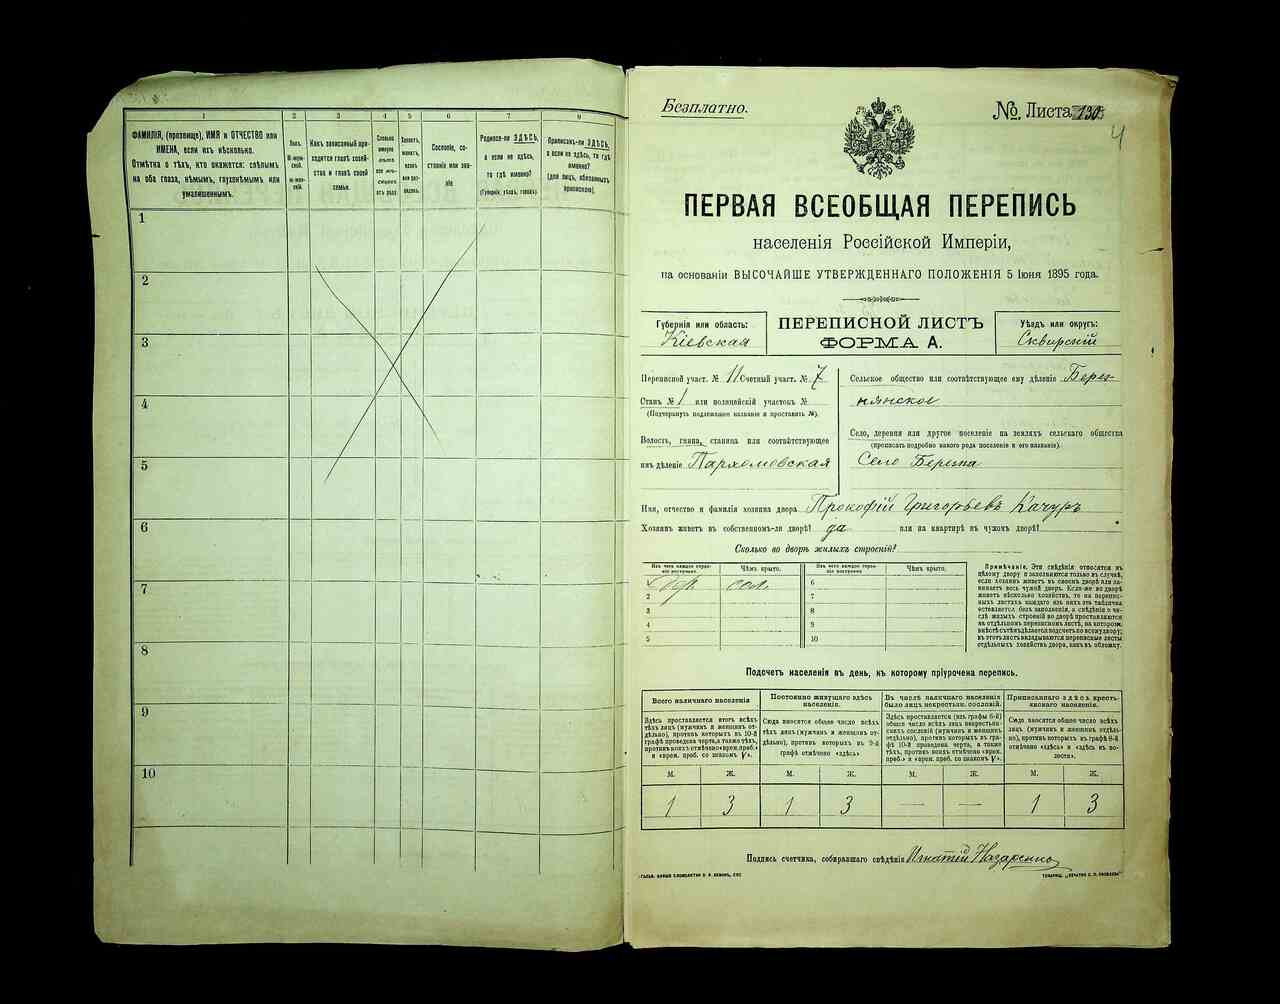 1
2
3
4
5
6
7
8
ФАМИЛІЯ, (прозвище), ИМЯ и ОТЧЕСТВО или
ИМЕНА, если ихъ нѣсколько.
Отмѣтка о тѣхъ, кто окажется: слѣпымъ
на оба глаза, нѣмымъ, глухонѣмымъ или
умалишеннымъ.
Полъ.
М-муж-
ской.
Ж-жен-
скій.
Какъ записанный при-
ходится главѣ хозяй-
ства и главѣ своей
семьи.
Сколько
минуло
лѣтъ
или мѣ-
сяцевъ
отъ роду.
Холостъ,
женатъ,
вдовъ
или раз-
веденъ.
Сословіе, со-
стояніе или зва-
ніе
Родился-ли ЗДѢСЬ,
а если не здѣсь,
то гдѣ именно?
(Губернія, уѣздъ, городъ).
Приписанъ-ли ЗДѢСЬ,
а если не здѣсь, то гдѣ
именно?
(для лицъ, обязанныхъ
припискою).
1
2
3
4
5
6
7
8
9
10
Безплатно.
№ Листа 130
4
ПЕРВАЯ ВСЕОБЩАЯ ПЕРЕПИСЬ
населенія Россійской Имперіи,
на основаніи ВЫСОЧАЙШЕ УТВЕРЖДЕННАГО ПОЛОЖЕНІЯ 5 Іюня 1895 года.
Губернія или область:
Кіевская
ПЕРЕПИСНОЙ ЛИСТЪ
ФОРМА А.
Уѣздъ или округъ:
Сквирскій
Переписной участ. № 11 Счетный участ. № 7
Станъ № 1 или полицейскій участокъ №
(Подчеркнуть подлежащее названіе и проставить №).
Волость, гмина, станица или соотвѣтствующее
имъ дѣленіе Пархомовская
Сельское общество или соотвѣтствующее ему дѣленіе Берез-
нянское
Село, деревня или другое поселеніе на земляхъ сельскаго общества
(прописать подробно какого рода поселеніе и его названіе).
Село Березна
Имя, отчество и фамилія хозяина двора Прокофій Григорьевъ Качуръ
Хозяинъ живетъ въ собственномъ-ли дворѣ? да или на квартирѣ въ чужомъ дворѣ?
Сколько во дворѣ жилыхъ строеній?
Изъ чего каждое строе-
ніе построено.
Чѣмъ крыто.
Изъ чего каждое строе-
ніе построено.
Чѣмъ крыто.
дер. сол.
2
3
4
5
6
7
8
9
10
Примѣчаніе. Эти свѣдѣнія относятся къ
цѣлому двору и заполняются только въ случаѣ,
если хозяинъ живетъ въ своемъ дворѣ или за-
нимаетъ весь чужой дворъ. Если-же во дворѣ
живетъ нѣсколько хозяйствъ, то на перепис-
ныхъ листахъ каждаго изъ нихъ эта табличка
оставляется безъ заполненія, а свѣдѣнія о чи-
слѣ жилыхъ строеній во дворѣ проставляются
на отдѣльномъ переписномъ листѣ, на которомъ
вмѣстѣ съ тѣмъ дѣлается подсчетъ по всему двору;
въ этотъ листъ вкладываются переписные листы
отдѣльныхъ хозяйствъ двора, какъ въ обложку.
Подсчетъ населенія въ день, къ которому пріурочена перепись.
Всего наличнаго населенія
Здѣсь проставляется итогъ всѣхъ
лицъ (мужчинъ и женщинъ от-
дѣльно), противъ которыхъ въ 10-й
графѣ проведена черта, а также тѣхъ,
противъ коихъ отмѣчено «врем. преб.»
и «врем. преб. со знакомъ V».
Постоянно живущаго здѣсь
населенія.
Сюда вносится общее число всѣхъ
тѣхъ лицъ (мужчинъ и женщинъ от-
дѣльно), противъ которыхъ въ 9-й
графѣ отмѣчено «здѣсь»
Въ числѣ наличнаго населенія
было лицъ некрестьян. сословій.
Здѣсь проставляется (изъ графы 6-й)
общее число всѣхъ лицъ некрестьян-
скихъ сословій (мужчинъ и женщинъ
отдѣльно), противъ которыхъ въ гра-
фѣ 10-й проведена черта, а также
тѣхъ, противъ коихъ отмѣчено «врем.
преб.» и «врем. преб. со знакомъ V».
Приписаннаго здѣсь кресть-
янскаго населенія.
Сюда вносится общее число всѣхъ
лицъ (мужчинъ и женщинъ отдѣль-
но), противъ которыхъ въ графѣ 8-й
отмѣчено «здѣсь» и «здѣсь въ во-
лости».
М. Ж. М. Ж. М. Ж. М. Ж.
1 3 1 3 — — 1 3
Подпись счетчика, собиравшаго свѣдѣнія Игнатій Назаренко